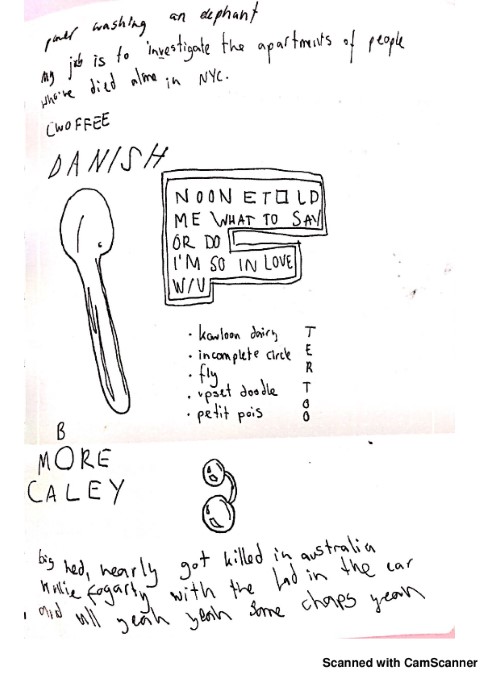 power washing an elephant
my job is to investigate the apartments of people
who've died alone in NYC.
CWOFFEE
DANISH
NOONE TOLD
ME WHAT TO SAY
OR DO
I'M SO IN LOVE
W/U
· kowloon dairy
· incomplete circle
· fly
· upset doodle
· petit pois
TERTOO
B
MORE
CALEY
big hed, nearly got killed in australia
fogarty with the lad in the car
and all yeah yeah some chaps yeah
Scanned with CamScanner